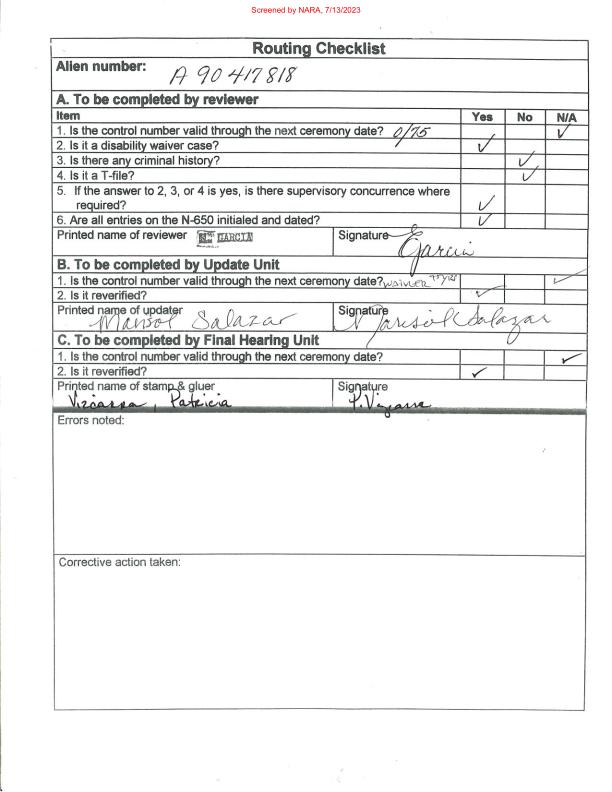 Screened by NARA, 7/13/2023
Routing Checklist
Alien number: A 90 417 818
A. To be completed by reviewer
Item Yes No N/A
1. Is the control number valid through the next ceremony date? 0/75 ✓
2. Is it a disability waiver case? ✓
3. Is there any criminal history? ✓
4. Is it a T-file? ✓
5. If the answer to 2, 3, or 4 is yes, is there supervisory concurrence where
required? ✓
6. Are all entries on the N-650 initialed and dated? ✓
Printed name of reviewer GARCIA Signature Garcia
B. To be completed by Update Unit
1. Is the control number valid through the next ceremony date? waiver 75 yrs ✓
2. Is it reverified? ✓
Printed name of updater Signature
Marisol Salazar Marisol Salazar
C. To be completed by Final Hearing Unit
1. Is the control number valid through the next ceremony date? ✓
2. Is it reverified? ✓
Printed name of stamp & gluer Signature
Vizcarra, Patricia P. Vizcarra
Errors noted:
Corrective action taken: